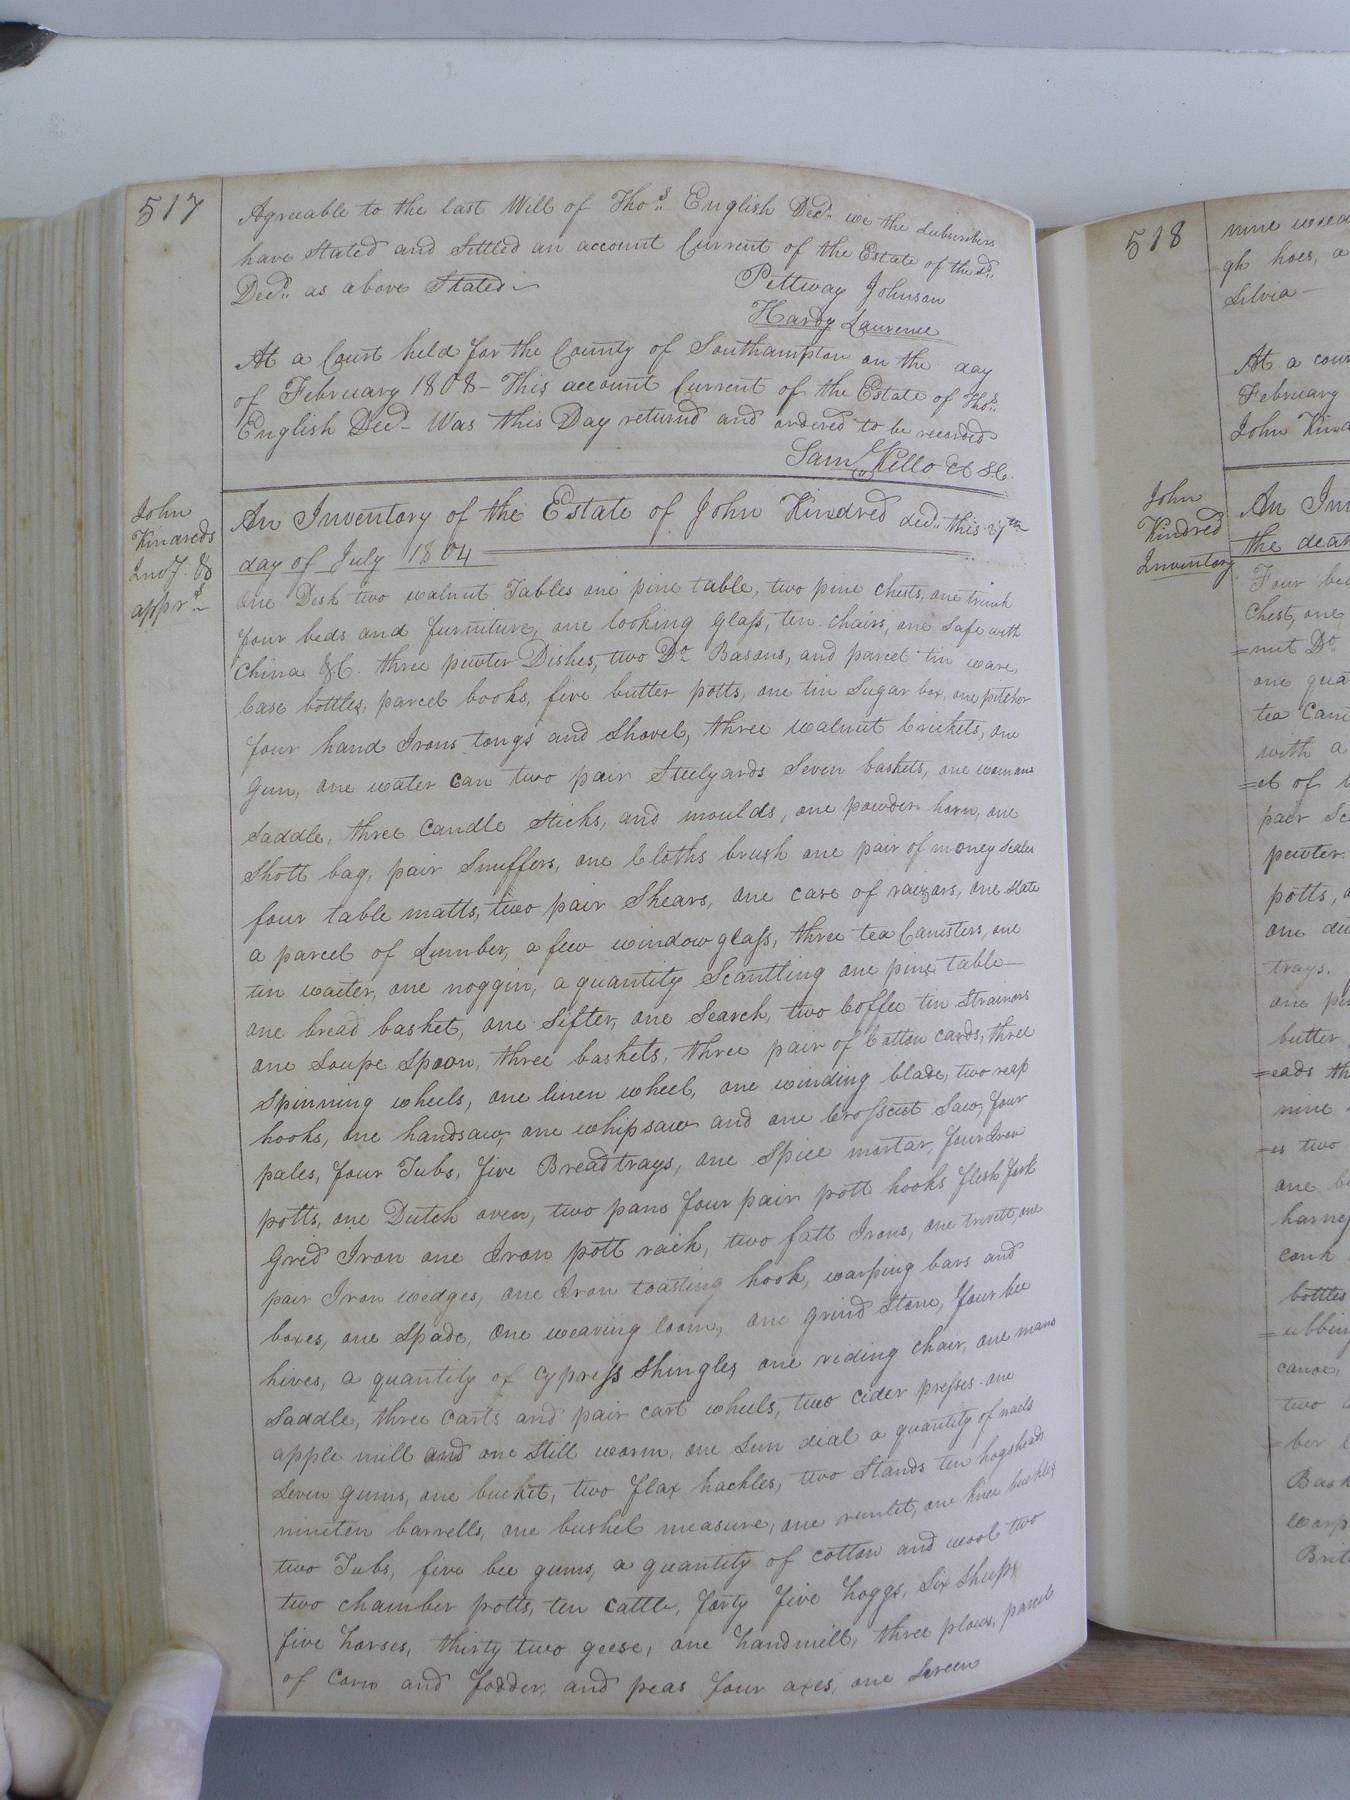 517
Agreeable to the last Will of Thos. English Decd. we the Subscribers
have Stated and Settled an account Current of the Estate of the sd.
Decd. as above Stated
Pittway Johnson
Hardy Laurence
At a Court held for the County of Southampton on the day
of February 1808 - This account Current of the Estate of Thos.
English Decd. Was this Day returnd and ordered to be recorded
Saml. Kello Ct S.C.
John
Kindreds
Invy. &
apprs.
An Inventory of the Estate of John Kindred decd. this 27th
day of July 1804
One Desk two walnut Tables one pine table, two pine Chests, one trunk
four beds and furniture, one looking Glass, ten chairs, one Safe with
China &C. three pewter Dishes, two Do. Basons, and parcel tin ware,
Case bottles, parcel books, five butter potts, one tin Sugar box, one pitcher
four hand Irons tongs and Shovel, three walnut Crickets, one
Gun, one water Can two pair Steelyards Seven baskets, one womans
Saddle, three Candle Sticks, and moulds, one powder horn, one
Shott bag, pair Snuffers, one Cloths brush one pair of money Scales
four table matts, two pair Shears, one case of raizors, one Slate
a parcel of Lumber, a few window glass, three tea Canisters, one
tin waiter, one noggin, a quantity Scantling one pine table
one bread basket, one Sifter, one Search, two Coffee tin Strainors
one Soupe Spoon, three baskets, three pair of Cotton cards, three
Spinning wheels, one linen wheel, one winding blade, two reap
hooks, one handsaw, one whipsaw and one Crosscut Saw, four
pales, four Tubs, five Bread trays, one Spice mortar, four Iron
potts, one Dutch oven, two pans four pair pott hooks flesh fork
Grid Iron one Iron pott rack, two fatt Irons, one trivett, one
pair Iron wedges, one Iron toasting hook, warping bars and
boxes, one Spade, One weaving loom, one grind Stone, four bee
hives, a quantity of Cypress Shingles, one riding chair, one mans
Saddle, three Carts and pair cart wheels, two cider presses one
apple mill and one Still worm, one Sun dial a quantity of nails
Seven gums, one bucket, two flax hackles, two Stands ten hogsheads
nineten barrells, one bushel measure, one runlet, one knee buckles
two Tubs, five bee gums, a quantity of cotton and wool two
two chamber potts, ten cattle, forty five hoggs, Six Sheep,
five horses, thirty two geese, one handmill, three plows, parcel
of Corn and fodder, and peas four axes, one Screen
518
nine
gh hoes, a
Silvia
At a
February
John
John
Kindred
Inventory
An
the
Four
Chest, one
=nut Do.
one
tea
with a
=el of
pair
pewter
potts,
one
trays.
one
butter
=eads
nine
=es two
one
bottles
canoe,
two
=ber